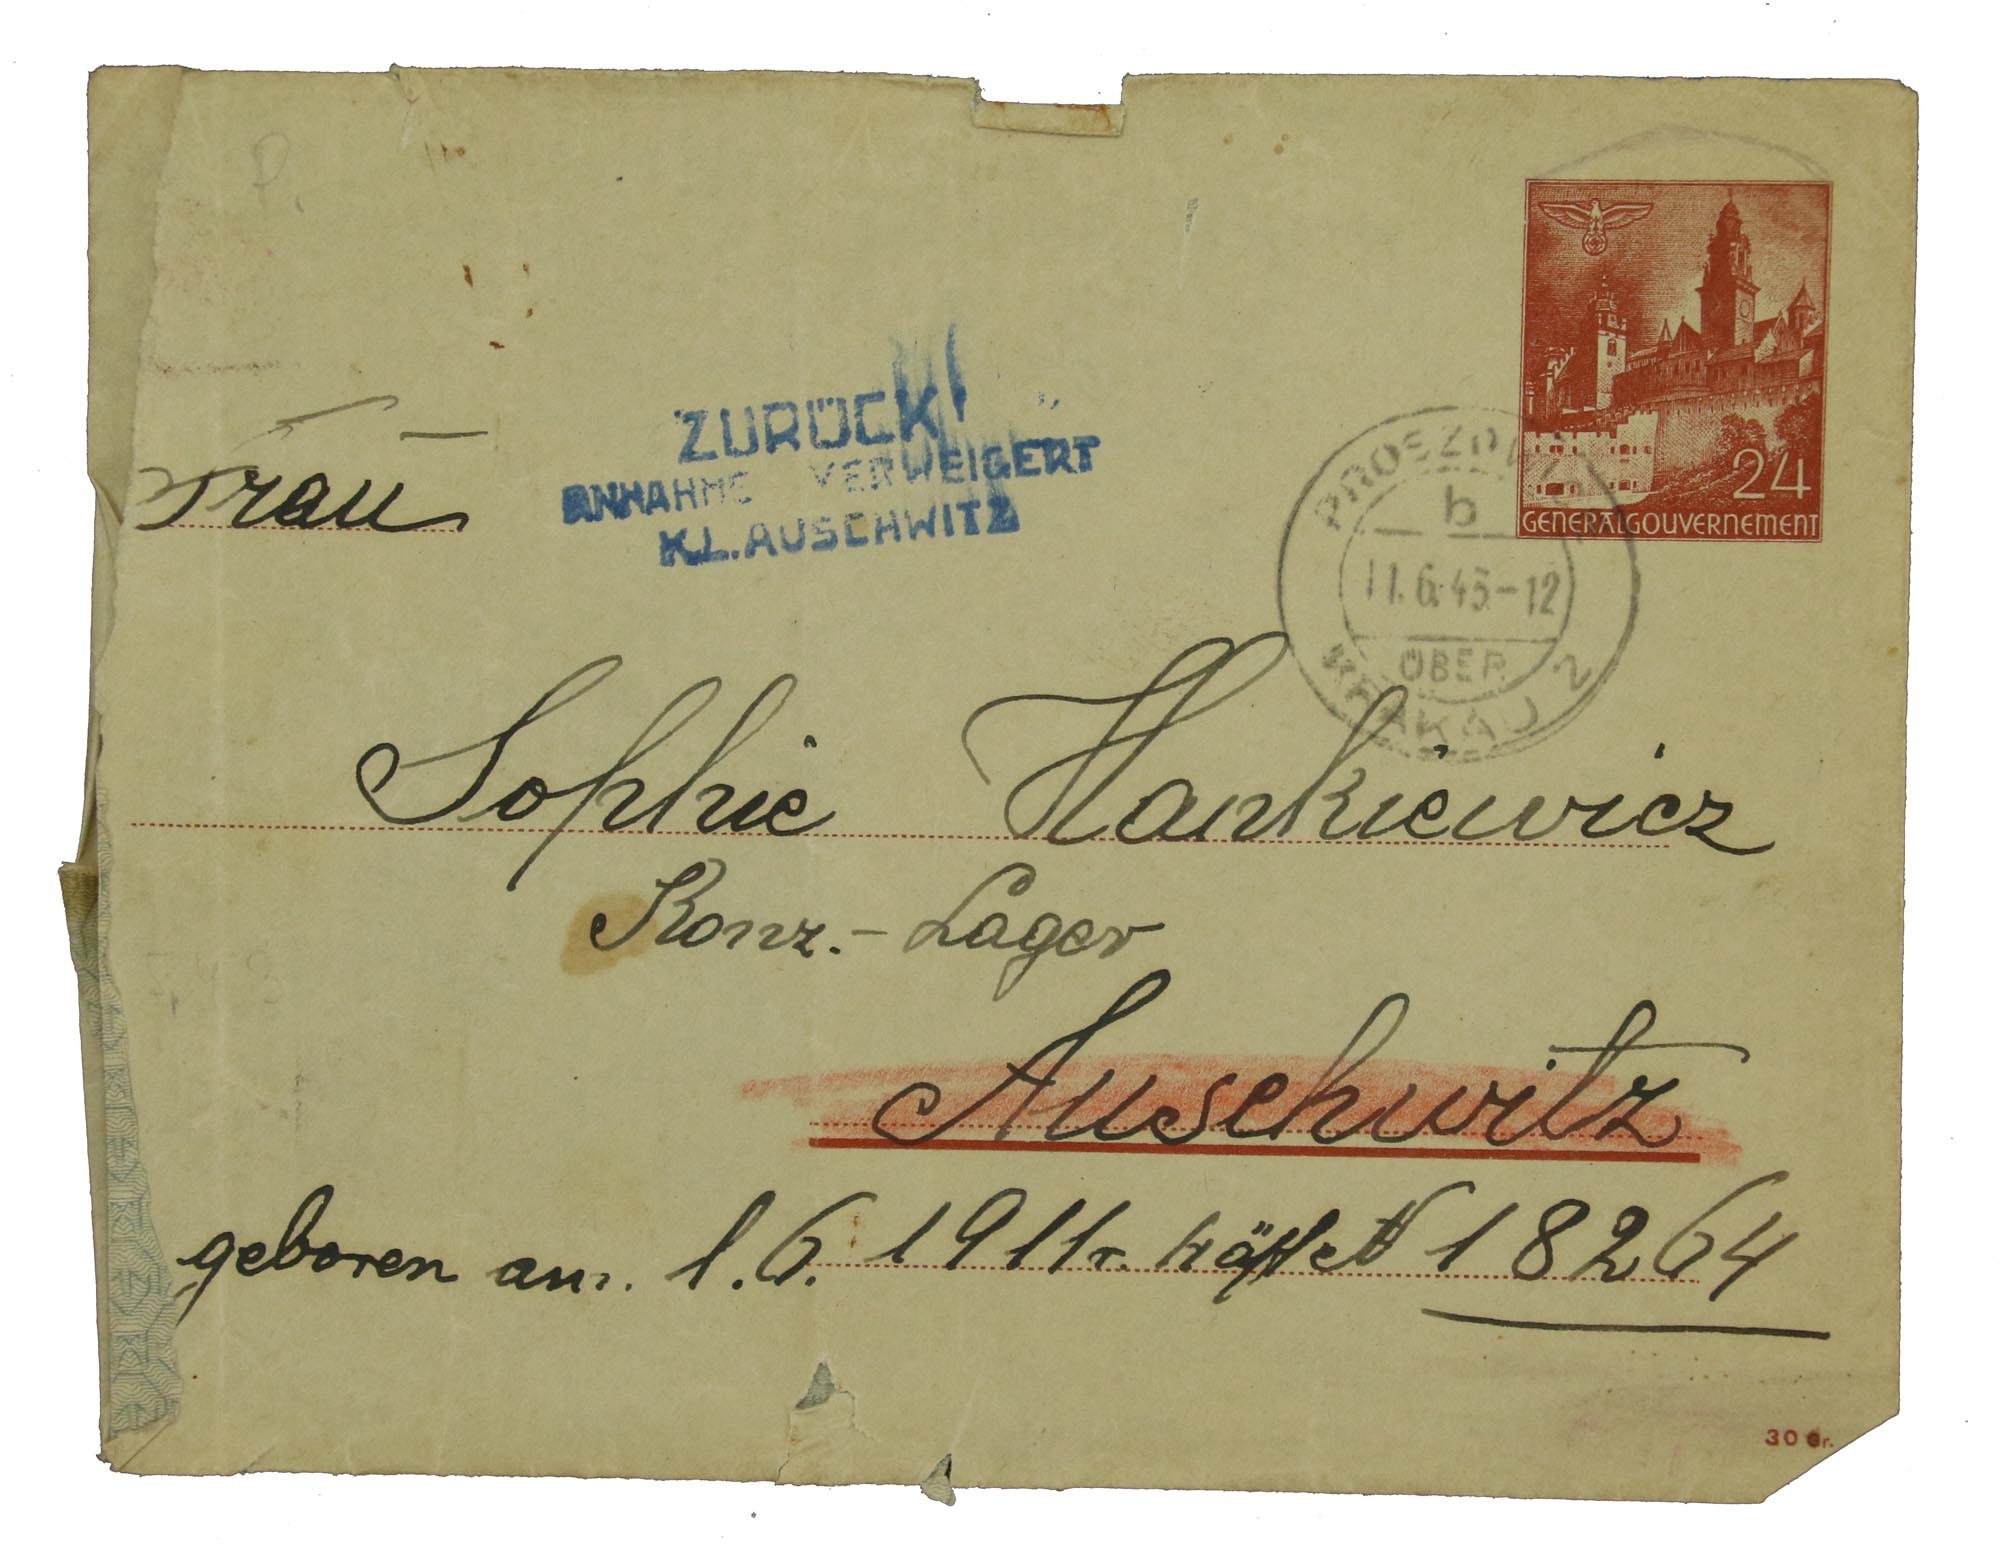 ZURÜCK!
ANNAHME VERWEIGERT
K.L. AUSCHWITZ
24
GENERALGOUVERNEMENT
b
11.6.43-12
ÜBER
KRAKAU 2
Frau
Sophie Hankiewicz
Konz.-Lager
Auschwitz
geboren am. 1.6.1911r. 18264
30 Gr.